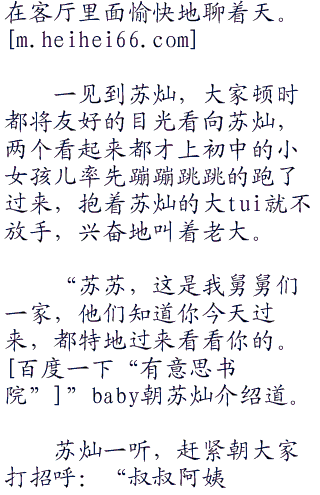 在客厅里面愉快地聊着天。
[m.heihei66.com]
一见到苏灿，大家顿时
都将友好的目光看向苏灿，
两个看起来都才上初中的小
女孩儿率先蹦蹦跳跳的跑了
过来，抱着苏灿的大tui就不
放手，兴奋地叫着老大。
“苏苏，这是我舅舅们
一家，他们知道你今天过
来，都特地过来看看你的。
[百度一下“有意思书
院”]”baby朝苏灿介绍道。
苏灿一听，赶紧朝大家
打招呼：“叔叔阿姨